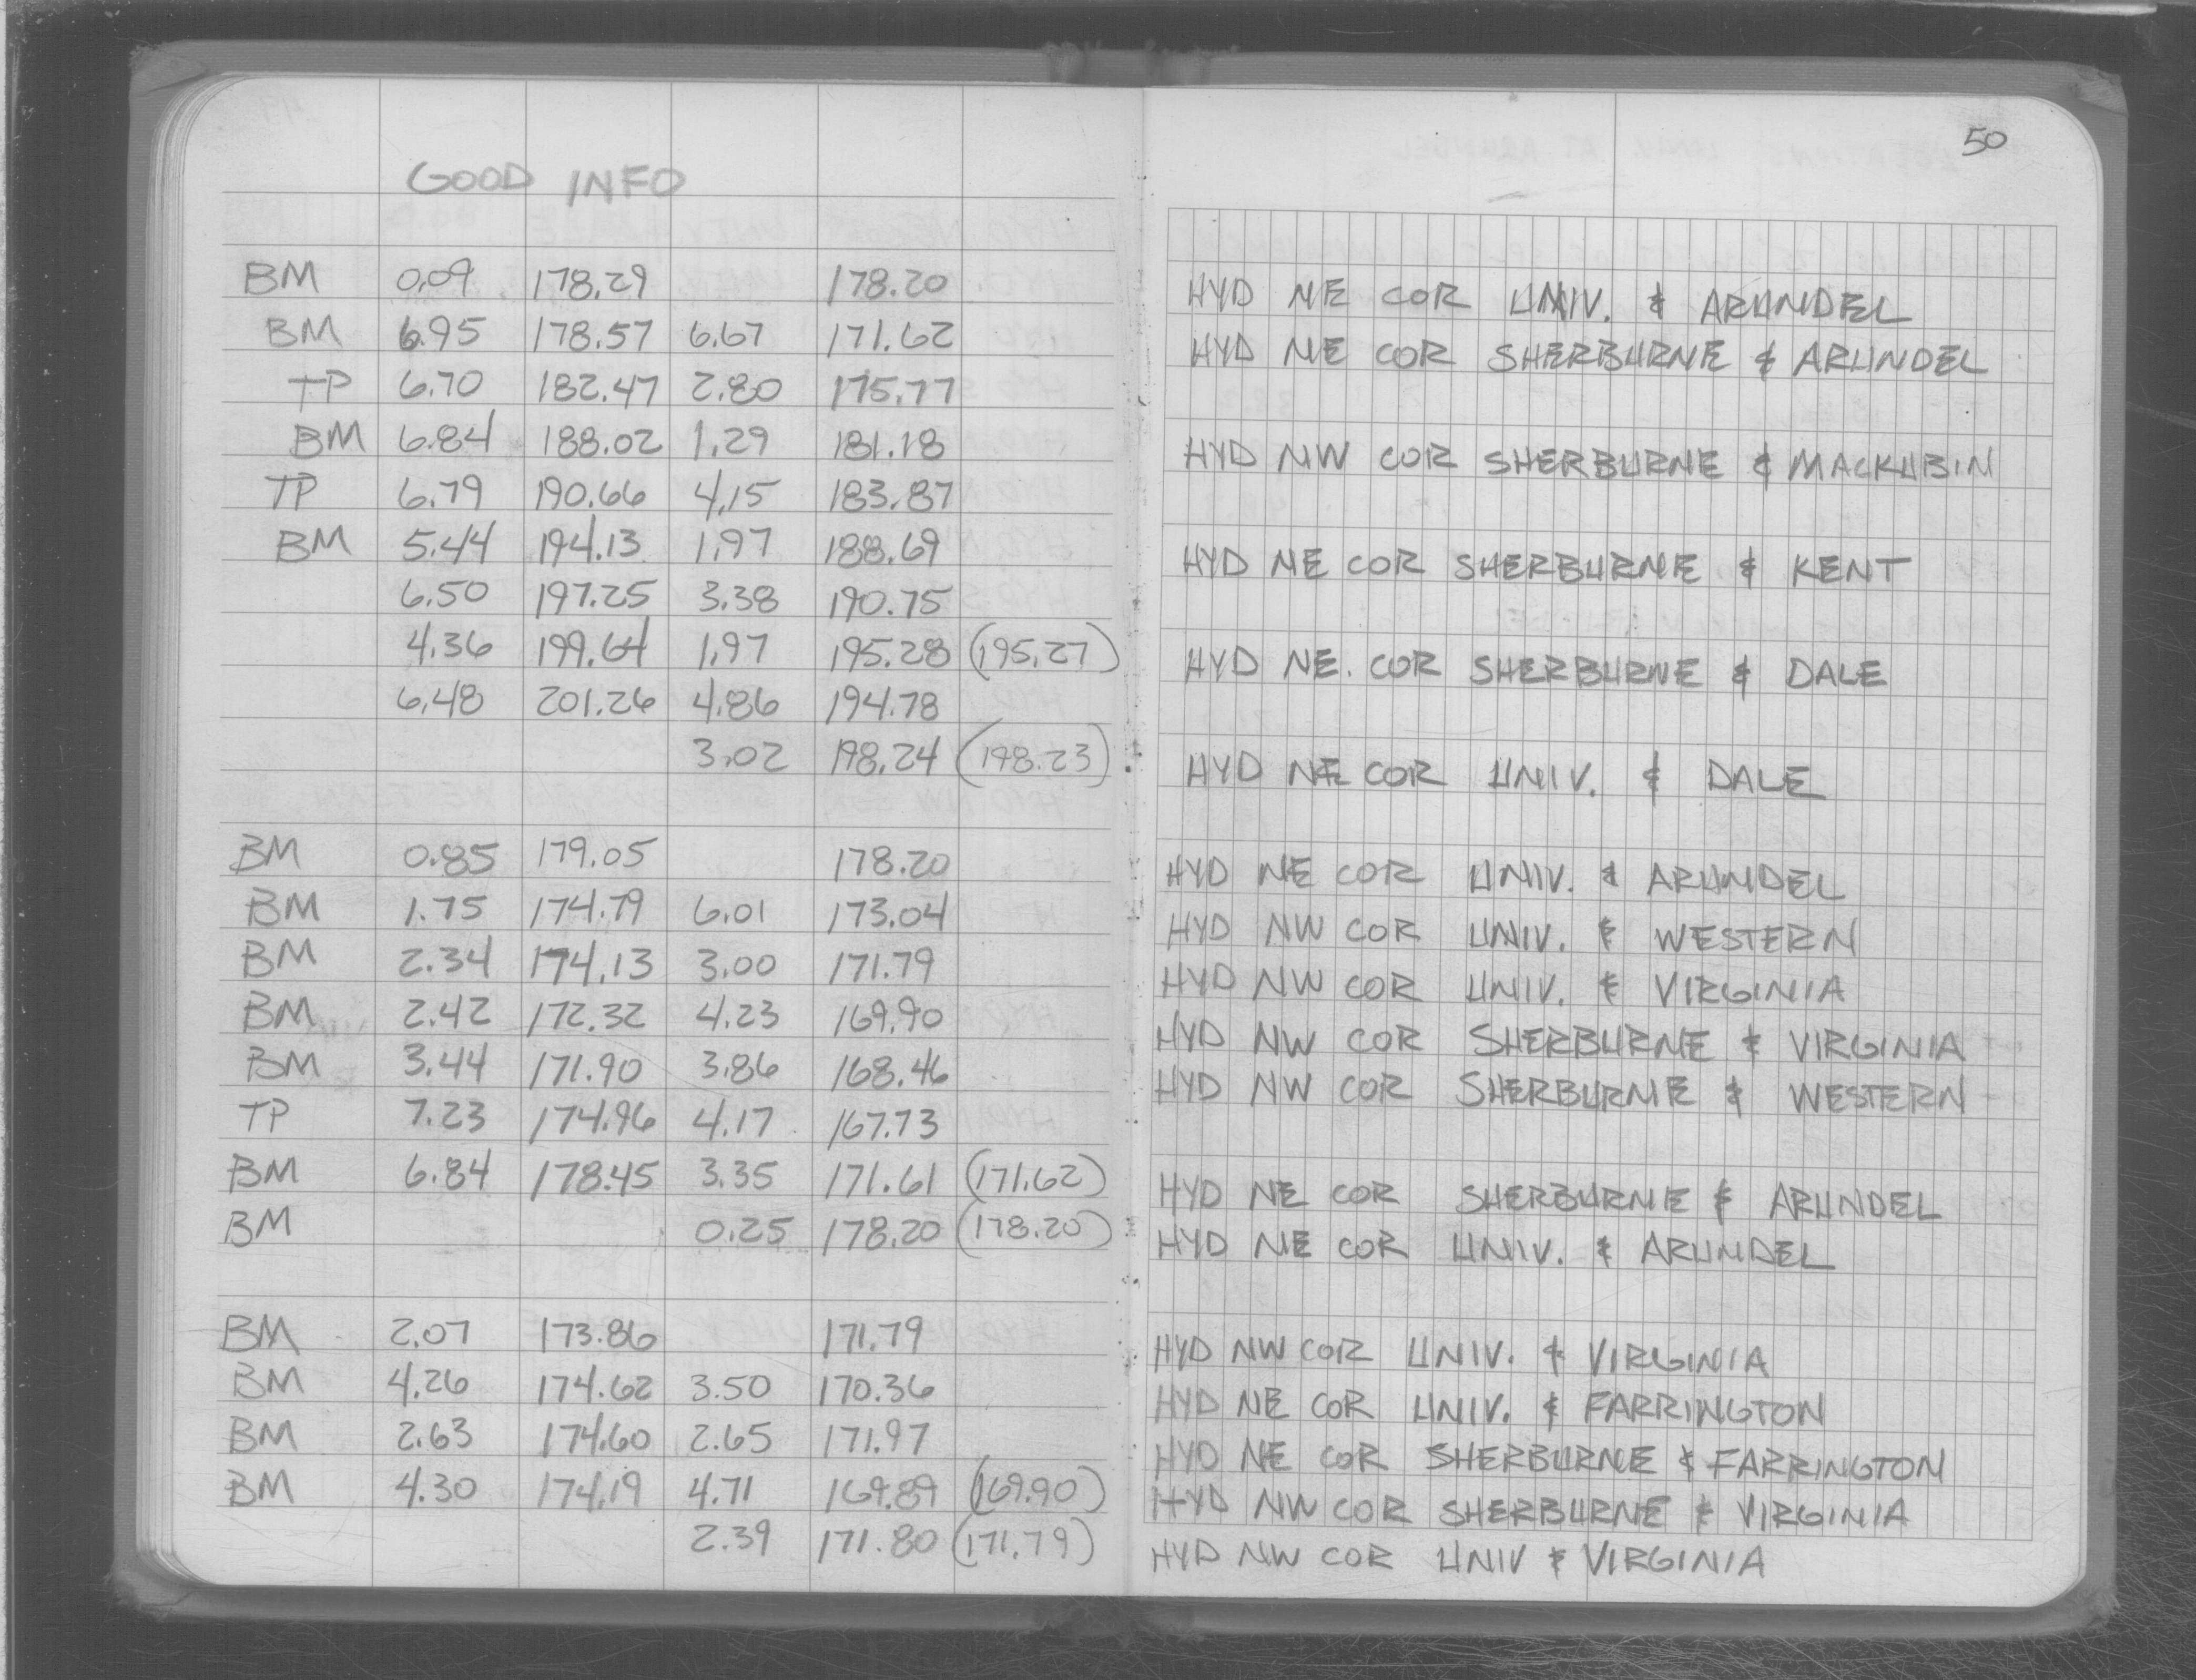 50
GOOD INFO
BM 0.09 178.29 178.20 HYD NE COR UNIV. & ARUNDEL
BM 6.95 178.57 6.67 171.62 HYD NE COR SHERBURNE & ARUNDEL
TP 6.70 182.47 2.80 175.77
BM 6.84 188.02 1.29 181.18 HYD NW COR SHERBURNE & MACKUBIN
TP 6.79 190.66 4.15 183.87
BM 5.44 194.13 1.97 188.69 HYD NE COR SHERBURNE & KENT
6.50 197.25 3.38 190.75
4.36 199.64 1.97 195.28 (195.27) HYD NE. COR SHERBURNE & DALE
6.48 201.26 4.86 194.78
3.02 198.24 (198.23) HYD NE COR UNIV. & DALE
BM 0.85 179.05 178.20 HYD NE COR UNIV. & ARUNDEL
BM 1.75 174.79 6.01 173.04 HYD NW COR UNIV. & WESTERN
BM 2.34 174.13 3.00 171.79 HYD NW COR UNIV. & VIRGINIA
BM 2.42 172.32 4.23 169.90 HYD NW COR SHERBURNE & VIRGINIA
BM 3.44 171.90 3.86 168.46 HYD NW COR SHERBURNE & WESTERN
TP 7.23 174.96 4.17 167.73
BM 6.84 178.45 3.35 171.61 (171.62) HYD NE COR SHERBURNE & ARUNDEL
BM 0.25 178.20 (178.20) HYD NE COR UNIV. & ARUNDEL
BM 2.07 173.86 171.79 HYD NW COR UNIV. & VIRGINIA
BM 4.26 174.62 3.50 170.36 HYD NE COR UNIV. & FARRINGTON
BM 2.63 174.60 2.65 171.97 HYD NE COR SHERBURNE & FARRINGTON
BM 4.30 174.19 4.71 169.89 (169.90) HYD NW COR SHERBURNE & VIRGINIA
2.39 171.80 (171.79) HYD NW COR UNIV & VIRGINIA